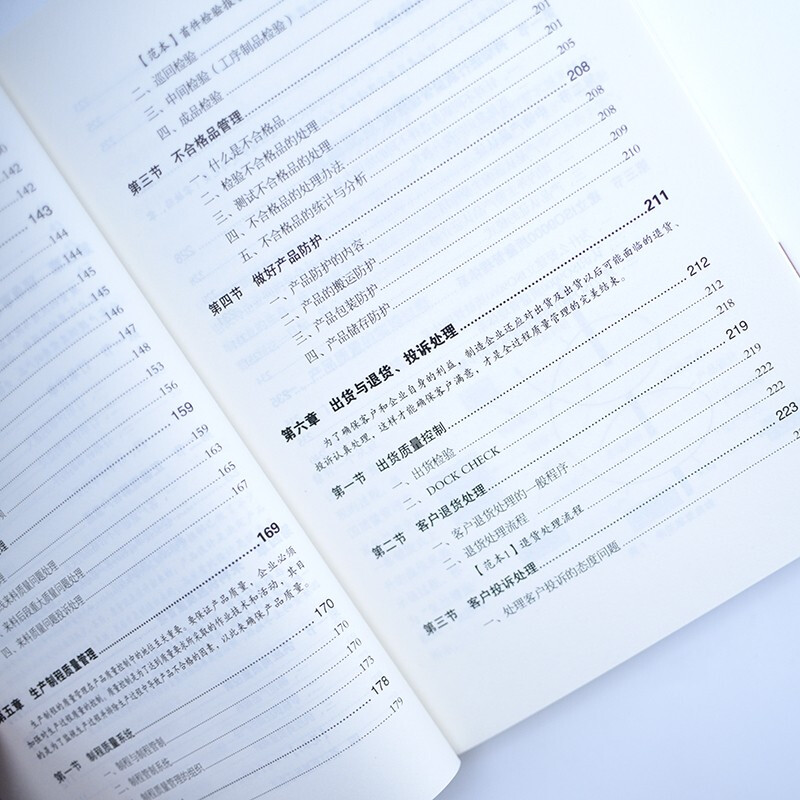 142
142
143
144
144
145
145
146
147
148
153
项 156
理 159
159
来料质量问题处理 163
来料后段重大质量问题处理 165
四、来料质量问题投诉处理 167
第五章 生产制程质量管理 169
生产制程的质量管理在产品质量控制中的地位至关重要。要保证产品质量，企业必须
加强对生产过程质量的控制。质量控制是为了达到质量要求所采取的作业技术和活动，其目
的是为了监视生产过程并排除生产过程中导致产品不合格的因素，以此来确保产品质量。
第一节 制程质量系统 170
一、制程与制程管制 170
二、制程管制系统 170
制程质量管理的组织 173
178
179
【范本】首件检验报
二、巡回检验
三、中间检验（工序制品检验）
四、成品检验
第三节 不合格品管理
一、什么是不合格品
二、检验不合格品的处理
三、测试不合格品的处理 201
四、不合格品的处理办法 201
五、不合格品的统计与分析 205
第四节 做好产品防护 208
一、产品防护的内容 208
二、产品的搬运防护 208
三、产品包装防护 209
四、产品储存防护 210
第六章 出货与退货、投诉处理 211
为了确保客户和企业自身的利益，制造企业还应对出货及出货以后可能面临的退货、
投诉认真处理，这样才能确保客户满意，才是全过程质量管理的完美结束。
第一节 出货质量控制 212
一、出货检验 212
二、DOCK CHECK 218
第二节 客户退货处理 219
一、客户退货处理的一般程序 219
二、退货处理流程 222
【范本】退货处理流程 222
第三节 客户投诉处理 223
一、处理客户投诉的态度问题